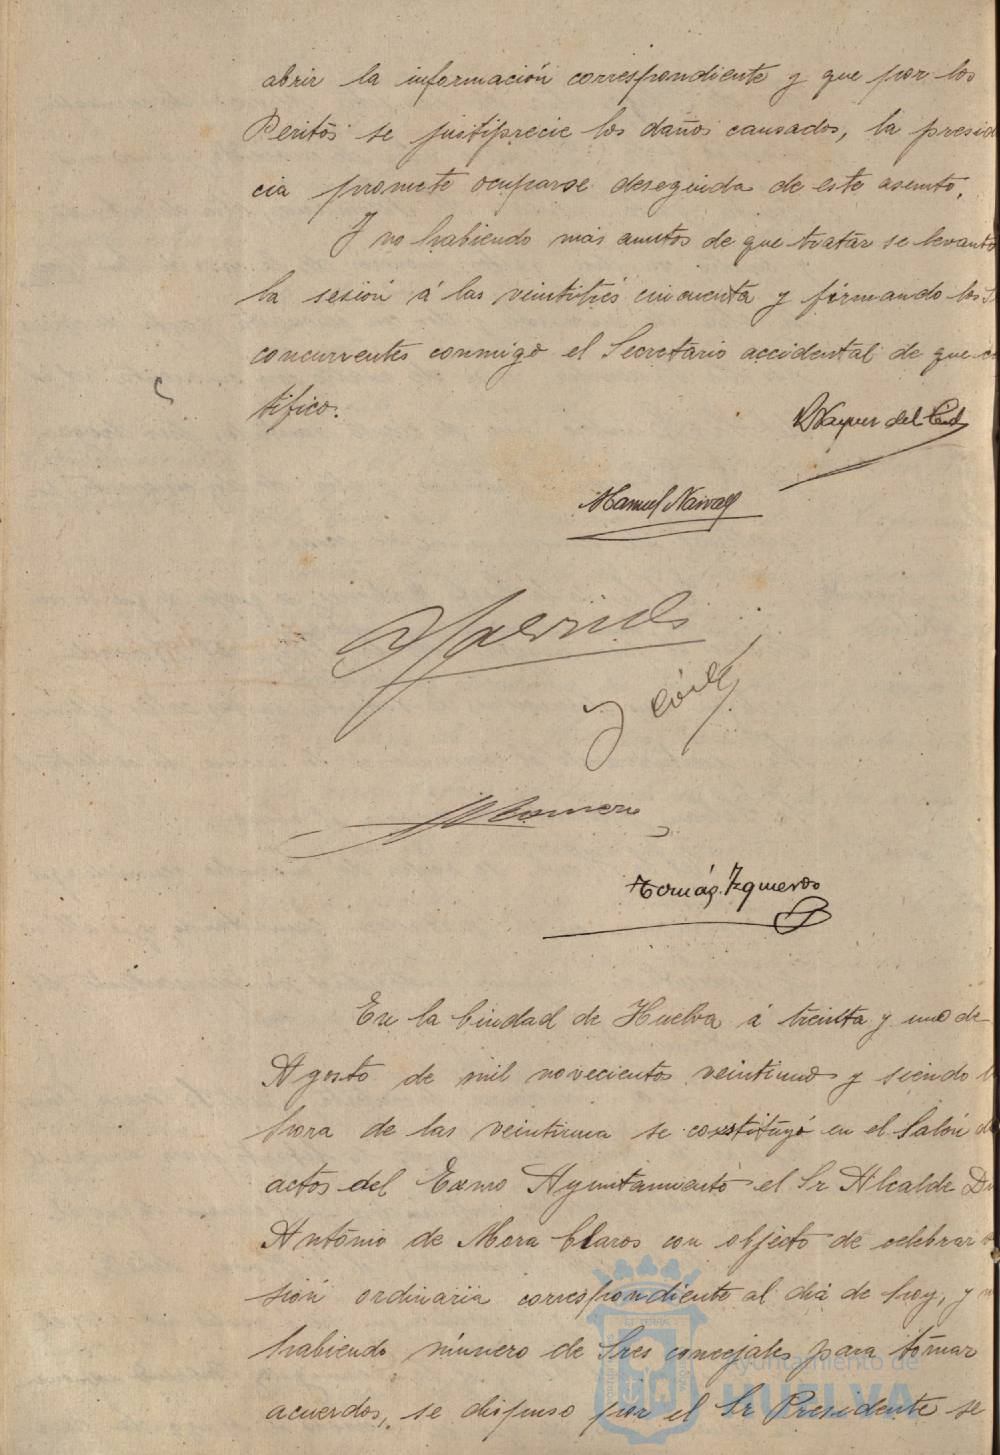 abrir la información correspondiente y que por los
Peritos se justiprecie los daños causados, la presid
cia promete ocuparse deseguida de este asunto.
Y no habiendo más asuntos de que tratar se levantó
la sesión á las veintitrés cincuenta y firmando los
concurrentes conmigo el Secretario accidental de que
tifico.
Vazquez del Cid
Manuel Narvaez
Galvindo
J
Romero
Tomás Izquierdo
En la Ciudad de Huelva á treinta y uno de
Agosto de mil novecientos veintiuno y siendo
hora de las veintiuna se constituyó en el Salón d
actos del Excmo Ayuntamiento el Sr Alcalde D
Antonio de Mora Claros con objeto de celebrar
sión ordinaria correspondiente al dia de hoy, y
habiendo número de Sres concejales para tomar
acuerdos, se dispuso por el Sr Presidente se
Ayuntamiento de
HUELVA